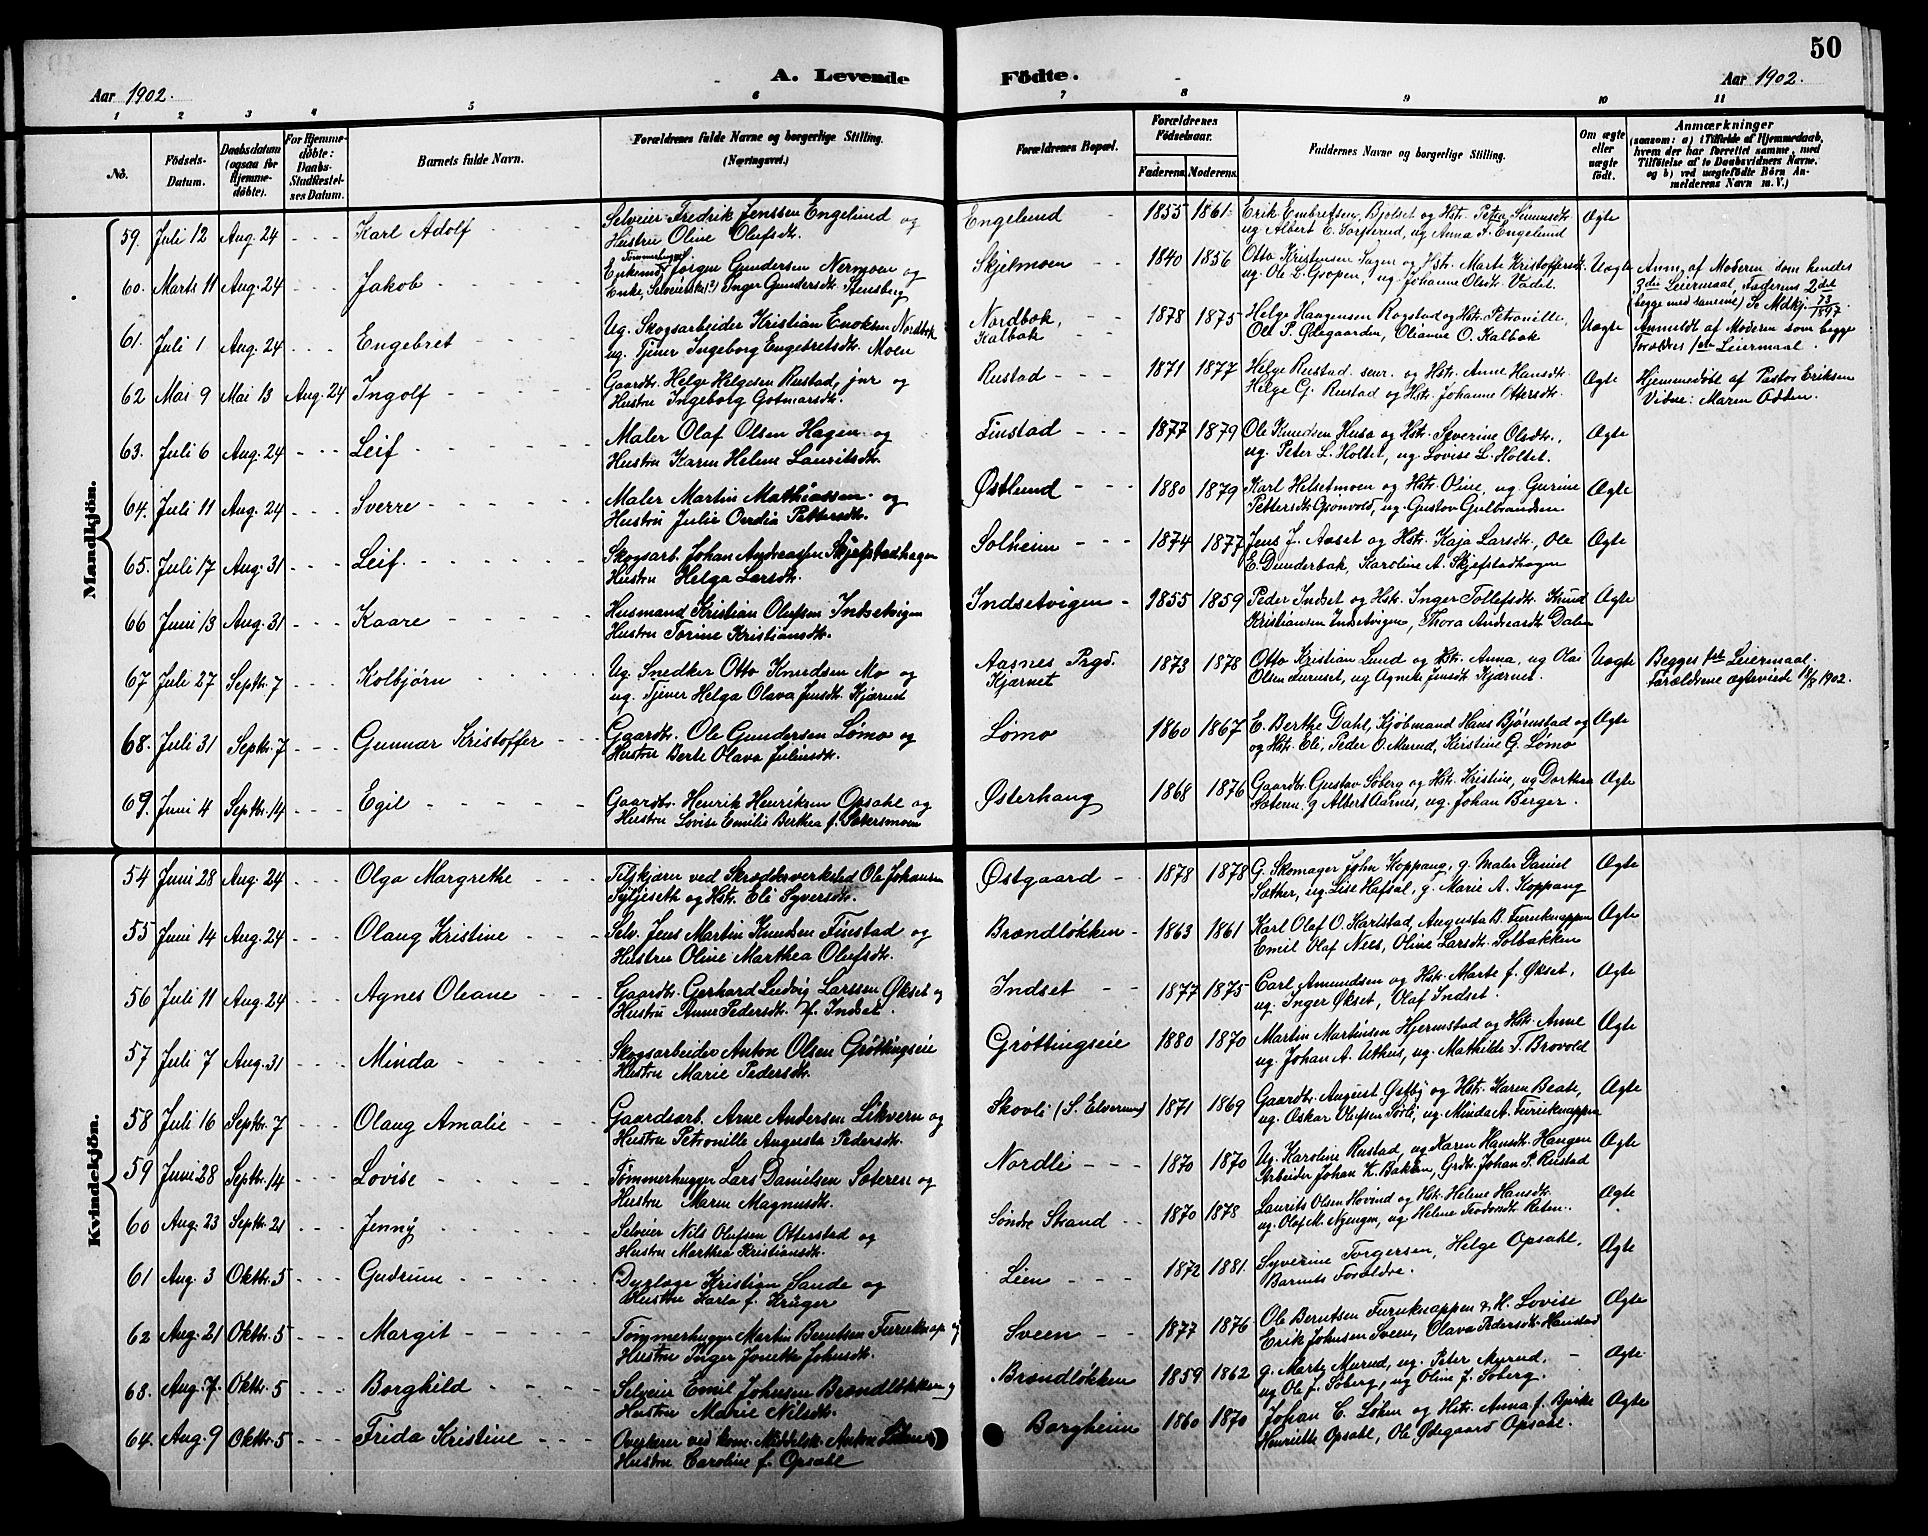 50
A. Levende Födte.
Aar 1902.
Aar 1902.
1 2 3 4 5 6 7 8 9 10 11
No.
Födsels-Datum.
Daabsdatum (ogsaa for Hjemmedöbte).
For Hjemmedöbte: Daabs-Stadfæstelses Datum.
Barnets fulde Navn.
Forældrenes fulde Navne og borgerlige Stilling. (Næringsvei.)
Forældrenes Bopæl.
Forældrenes Födselsaar.
Faderens. Moderens.
Faddernes Navne og borgerlige Stilling.
Om ægte eller uægte födt.
Anmærkninger
(saasom: a) i Tilfælde af Hjemmedaab, hvem der har forrettet samme, med Tilföielse af to Daabsvidners Navne, og b) ved uægtefödte Börn Anmelderens Navn m. V.)
Mandkjön.
59. Juli 12 Aug. 24 - - - Karl Adolf - - - Selveier Fredrik Jenssen Engelund og
Hustru Oline Olufsdt. Engelund - 1855 1861 Erik Embretsen, Bjølset og Hstr. Petra Simensdt.
ug Albert E. Torferud, ug Anna F. Engelund Ægte
60. Marts 11 Aug. 24 - - - Jakob - - - Enkemd Tømmerhugger Jørgen Gundersen Nermoen og
Enke, Inger Gundersdt. Stensberg Skjelmoen - - 1840 1856 Otto Kristensen Sagen og Hstr. Marte Kristoffersdt.
ug. Ole L. Gropen, ug. Johanne Olsdt. Vadet. Uægte Anm. af Moderen som hendes
3die Leiermaal, Faderens 2det
(begge med samme) Se
61. Juli 1 Aug. 24 - - - Engebret - - - Ug. Skogsarbeider Kristian Enoksen Nordbæk
ug. Tjener Ingeborg Engebretsdt. Moen Nordbæk,
Kalbæk 1878 1875 Helge Haagensen Rogstad og Hstr. Petronille,
Ole P. Ødegaarden, Oleanne O. Kalbæk Uægte Anmeldt af Moderen som begge
Forældres 1ste Leiermaal.
62 Mai 9 Mai 13 Aug. 24 Ingolf - - - Gaardbr. Helge Helgesen Rustad, jnr og
Hustru Ingeborg Gotmarsdt. Rustad - - - 1871 1877 Helge Rustad senr. og Hstr. Anne Hansdt.
Helge G. Rustad og Hstr. Johanne Ottersdt. Ægte Hjemmedøbt af Pastor Eriksen
Vidne: Maren Odden.
63. Juli 6 Aug. 24 - - - Leif - - - Maler Olaf Olsen Hagen og
Hustru Karen Helene Lauritsdt. Finstad - - - 1877 1879 Ole Knudsen Husa og Hstr. Severine Olsdt.,
ug. Peter L. Holtet, ug. Lovise L. Holtet. Ægte
64. Juli 11 Aug. 24 - - - Sverre - - - Maler Martin Mathiassen og
Hustru Julie Pettersdt. Østlund - - - 1880 1879 Karl Helsetmoen og Hstr. Oline, ug Gurine
Pettersdt. Grønvold, ug. Gustav Gulbrandsen Ægte
65. Juli 17 Aug. 31 - - - Leif - - - Skogsarb. Johan Andreassen Skjefstadhagen
Hustru Helga Larsdt. Solheim - - - 1874 1877 Jens J. Aaset og Hstr. Kaja Larsdt., Ole
E. Dunderbak, Karoline A. Skjefstadhagen Ægte
66 Juni 13 Aug. 31 - - - Kaare - - - Husmand Kristian Olufsen Indsetvigen
Hustru Torine Kristiansdt. Indsetvigen - 1855 1859 Peder Indset og Hstr. Inger Tollefsdt. Knud
Kristiansen Indsetvigen, Thora Andreasdt Dalen Ægte
67 Juli 27 Septbr. 7 - - - Kolbjørn - - - Ug. Snedker Otto Knudsen Mo og
ug. Tjener Helga Olava Jensdt. Kjærnet Aasnes Prgd.
Kjærnet 1873 1878 Otto Kristian Lund og Hstr. Anna, ug Olai
Olsen Furuset, ug Agnete Jensdt. Kjærnet. Uægte Begges 1ste Leiermaal.
Forældrene ægteviede 1902.
68. Juli 31 Septbr. 7 - - - Gunnar Kristoffer - - - Gaardbr. Ole Gundersen Lømo og
Hustru Berte Olava Juliusdt. Lømo 1860 1867 E. Berthe Dahl, Kjøbmand Hans Bjørnstad og
og Hstr. Eli, Peder O. Murud, Kirstine G. Lømo Ægte
69. Juni 4 Septbr. 14 - - - Egil - - - Gaardbr. Henrik Henriksen Opsahl og
Hustru Lovise Emilie Berthea f. Sætersmoen Østerhaug 1868 1876 Gaardbr. Gustav Søberg og Hstr. Kristine, ug Dorthea
Sæteren g Albert Aarnes, ug. Johan Berger. Ægte
Kvindekjön.
54 Juni 28 Aug. 24 - - - Olga Margrethe - - - Tilskjærer ved Skrædderverksted Ole Johansen
Syljeseth og Hstr. Eli Syversdt. Østgaard - - 1878 1878 G. Skomager John Koppang, g. Maler Daniel
Sæther, ug. Lise Hafsal, g. Marie A. Koppang Ægte
55 Juni 14 Aug. 24 - - - Olaug Kristine - - - Selv. Jens Martin Knudsen Finstad og
Hustru Oline Marthea Olufsdt. Brændløkken - 1863 1861 Karl Olaf O. Karlstad, Augusta B. Furuknappen
Emil Olaf Nees, Oline Larsdt. Solbakken Ægte
56 Juli 11 Aug. 24 - - - Agnes Oleane - - - Gaardbr. Gerhard Ludvig Larssen Økset og
Hustru Anne Pedersdt. f. Indset. Indset - - 1877 1875 Carl Amundsen og Hstr. Marte f. Økset,
ug. Inger Økset, Olaf Indset. Ægte
57 Juli 7 Aug. 31 - - - Minda - - - Skogsarbeider Anton Olsen Grøttingseie
Hustru Marie Pedersdt. Grøttingseie 1880 1870 Martin Martinsen Hjermstad og Hstr. Anne
ug. Johan A. Uthus, ug. Mathilde T. Brovold Ægte
58 Juli 16 Septbr. 7 - - - Olaug Amalie - - - Gaardsarb. Arne Andersen Likvern og
Hustru Petronille Augusta Pedersdt. Skovli (S. Elverum) 1871 1869 Gaardbr. August Østby og Hstr. Karen Beate,
ug. Oskar Olufsen Sørli, ug. Minda A. Furuknappen Ægte
59 Juni 28 Septbr. 14 - - - Lovise - - - Tømmerhugger Lars Danielsen Sæteren og
Hustru Maren Magnusdt. Nordli - - - 1870 1870 Ug. Karoline Rustad, ug Karen Hansdt. Haugen
Arbeider Johan K. Bakken, Grdbr. Johan P. Rustad Ægte
60 Aug. 23 Septbr. 21 - - - Jenny - - - Selveier Nils Olufsen Otterstad og
Hustru Marthea Kristiansdt. Søndre Strand - - 1870 1878 Laurits Olsen Hovind og Hstr. Helene Hansdt.
ug. Olaf M. Nyengen, ug Helene Reten. Ægte
61 Aug. 3 Oktbr. 5 - - - Gudrun - - - Dyrlæge Kristian Sande og
Hustru Karla f. Krüger Lien - - - 1872 1881 Syverine Torgersen, Helge Opsahl,
Barnets Forældre. Ægte
62 Aug. 21 Oktbr. 5 - - - Margit - - - Tømmerhugger Martin Berntsen Furuknap og
Hustru Inger Jonette Johnsdt. Sveen - - 1877 1876 Ole Berntsen Furuknappen & H. Lovise
Erik Johnsen Sveen, Olava Pedersdt. Hanstad Ægte
63. Aug. 7. Oktbr. 5 - - - Borghild - - - Selveier Emil Johnsen Brændløkken og
Hustru Marie Nilsdt. Brændløkken 1859 1862 g. Marte Myrud, ug. Peter Myrud,
ug Ole J. Søberg, ug Oline J. Søberg. Ægte
64. Aug. 9 Oktbr. 5 - - - Frida Kristine - - - Overlærer ved kom. Middelsk. Anton Løhre
Hustru Caroline f. Opsahl Borgheim 1860 1870 Johan C. Løhre og Hstr. Anna f. Bjerke
Henriette Opsahl, Ole Ødegaard Opsahl. Ægte